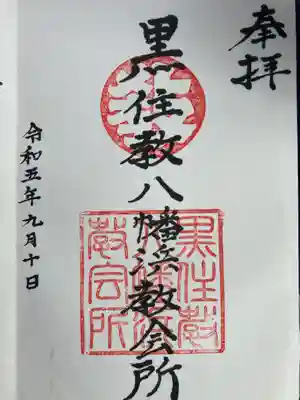 奉拝
黒住教八幡浜教会所
令和五年九月十日
黒住教
八幡浜
教会所